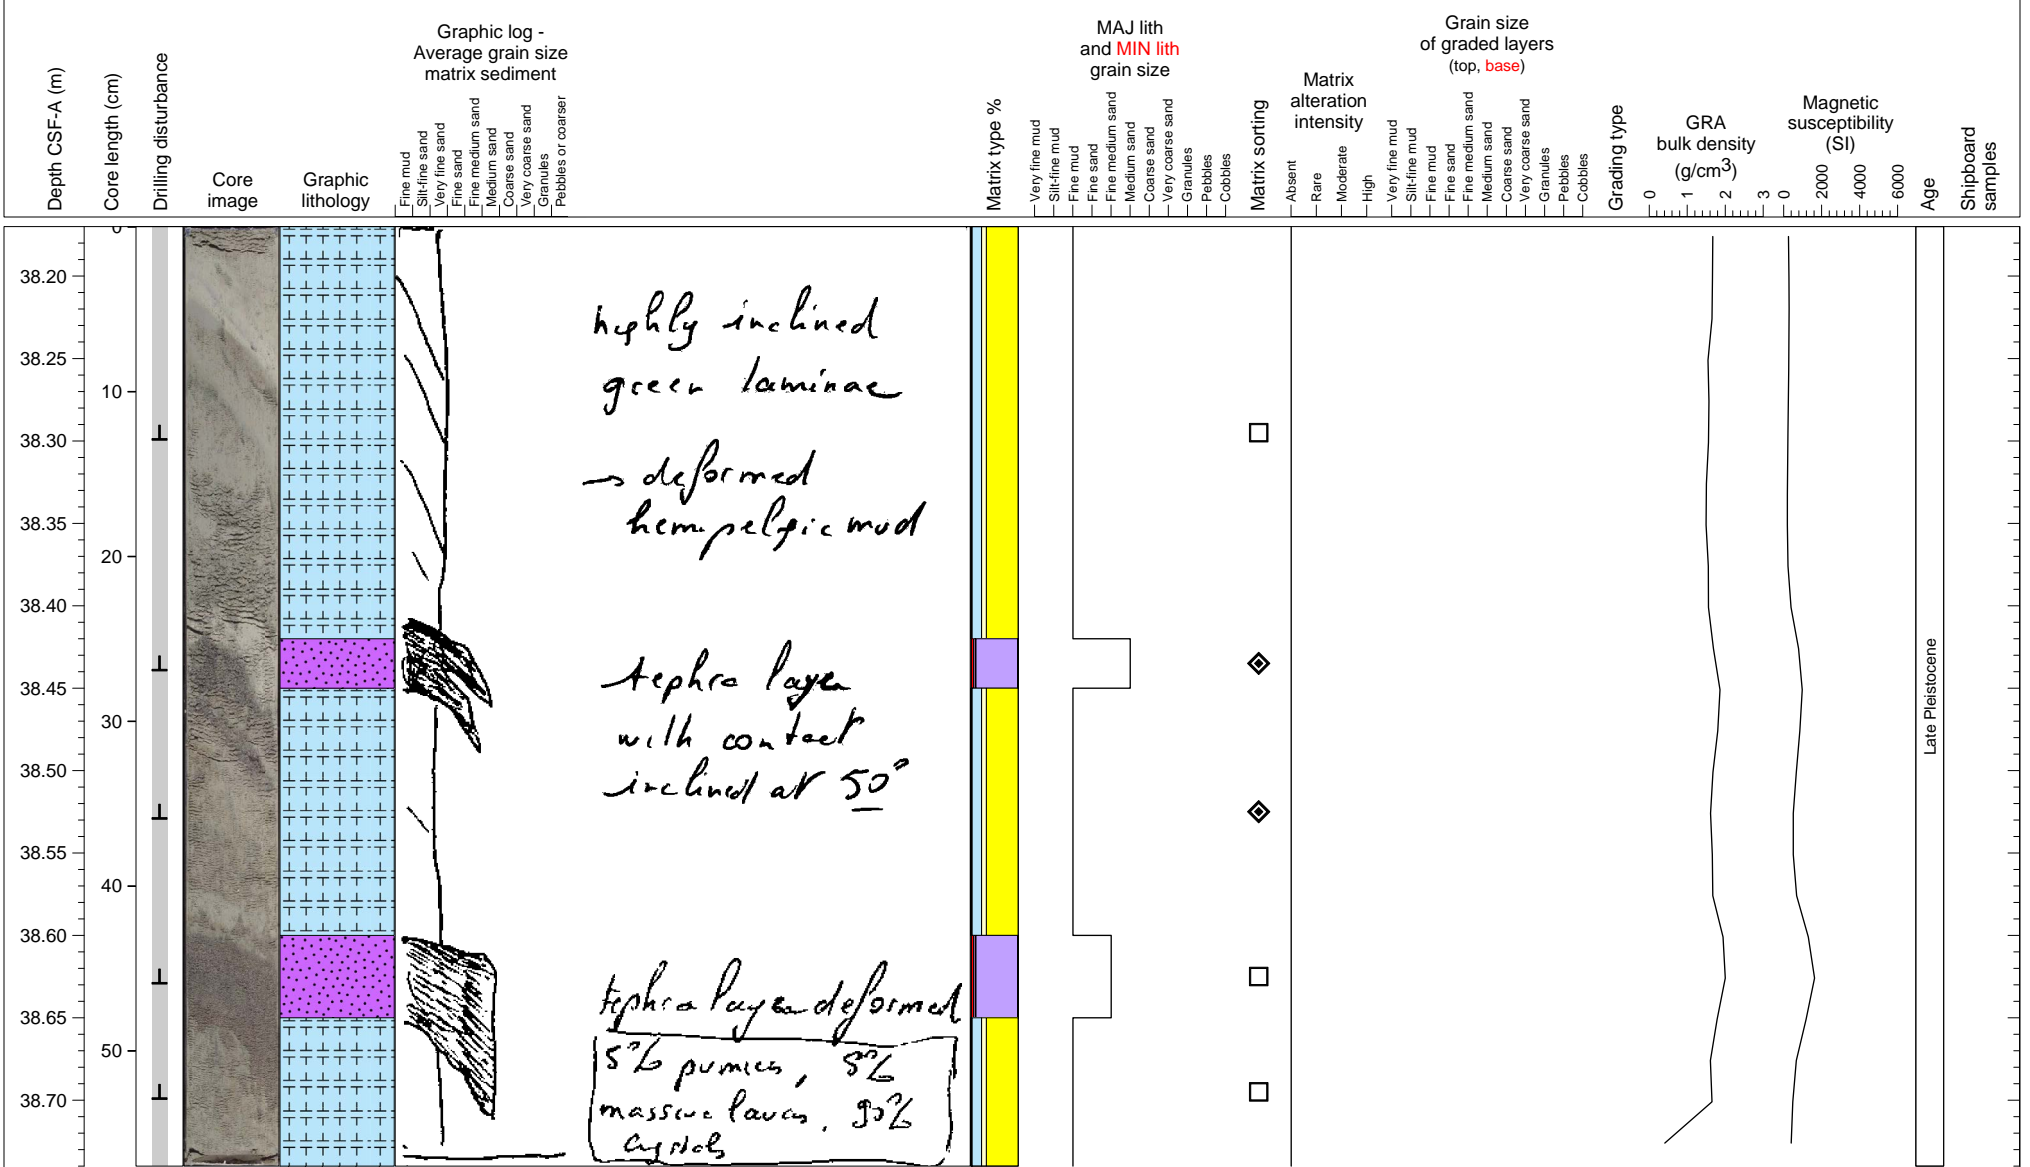 Depth CSF-A (m)
Core length (cm)
Drilling disturbance
Core
image
Graphic
lithology
Graphic log -
Average grain size
matrix sediment
Fine mud
Silt-fine sand
Very fine sand
Fine sand
Fine medium sand
Medium sand
Coarse sand
Very coarse sand
Granules
Pebbles or coarser
Matrix type %
MAJ lith
and MIN lith
grain size
Very fine mud
Silt-fine mud
Fine mud
Fine sand
Fine medium sand
Medium sand
Coarse sand
Very coarse sand
Granules
Pebbles
Cobbles
Matrix sorting
Matrix
alteration
intensity
Absent
Rare
Moderate
High
Grain size
of graded layers
(top, base)
Very fine mud
Silt-fine mud
Fine mud
Fine sand
Fine medium sand
Medium sand
Coarse sand
Very coarse sand
Granules
Pebbles
Cobbles
Grading type
GRA
bulk density
(g/cm3)
0 1 2 3
Magnetic
susceptibility
(SI)
0 2000 4000 6000
Age
Shipboard
samples
0
38.20
38.25
38.30
38.35
38.40
38.45
38.50
38.55
38.60
38.65
38.70
10
20
30
40
50
highly inclined
green laminae
→ deformed
hemipelgic mud
tephra layer
with contact
inclined at 50°
tephra layer deformed
5% pumices, 5%
massive lavas, 90%
crystals
Late Pleistocene